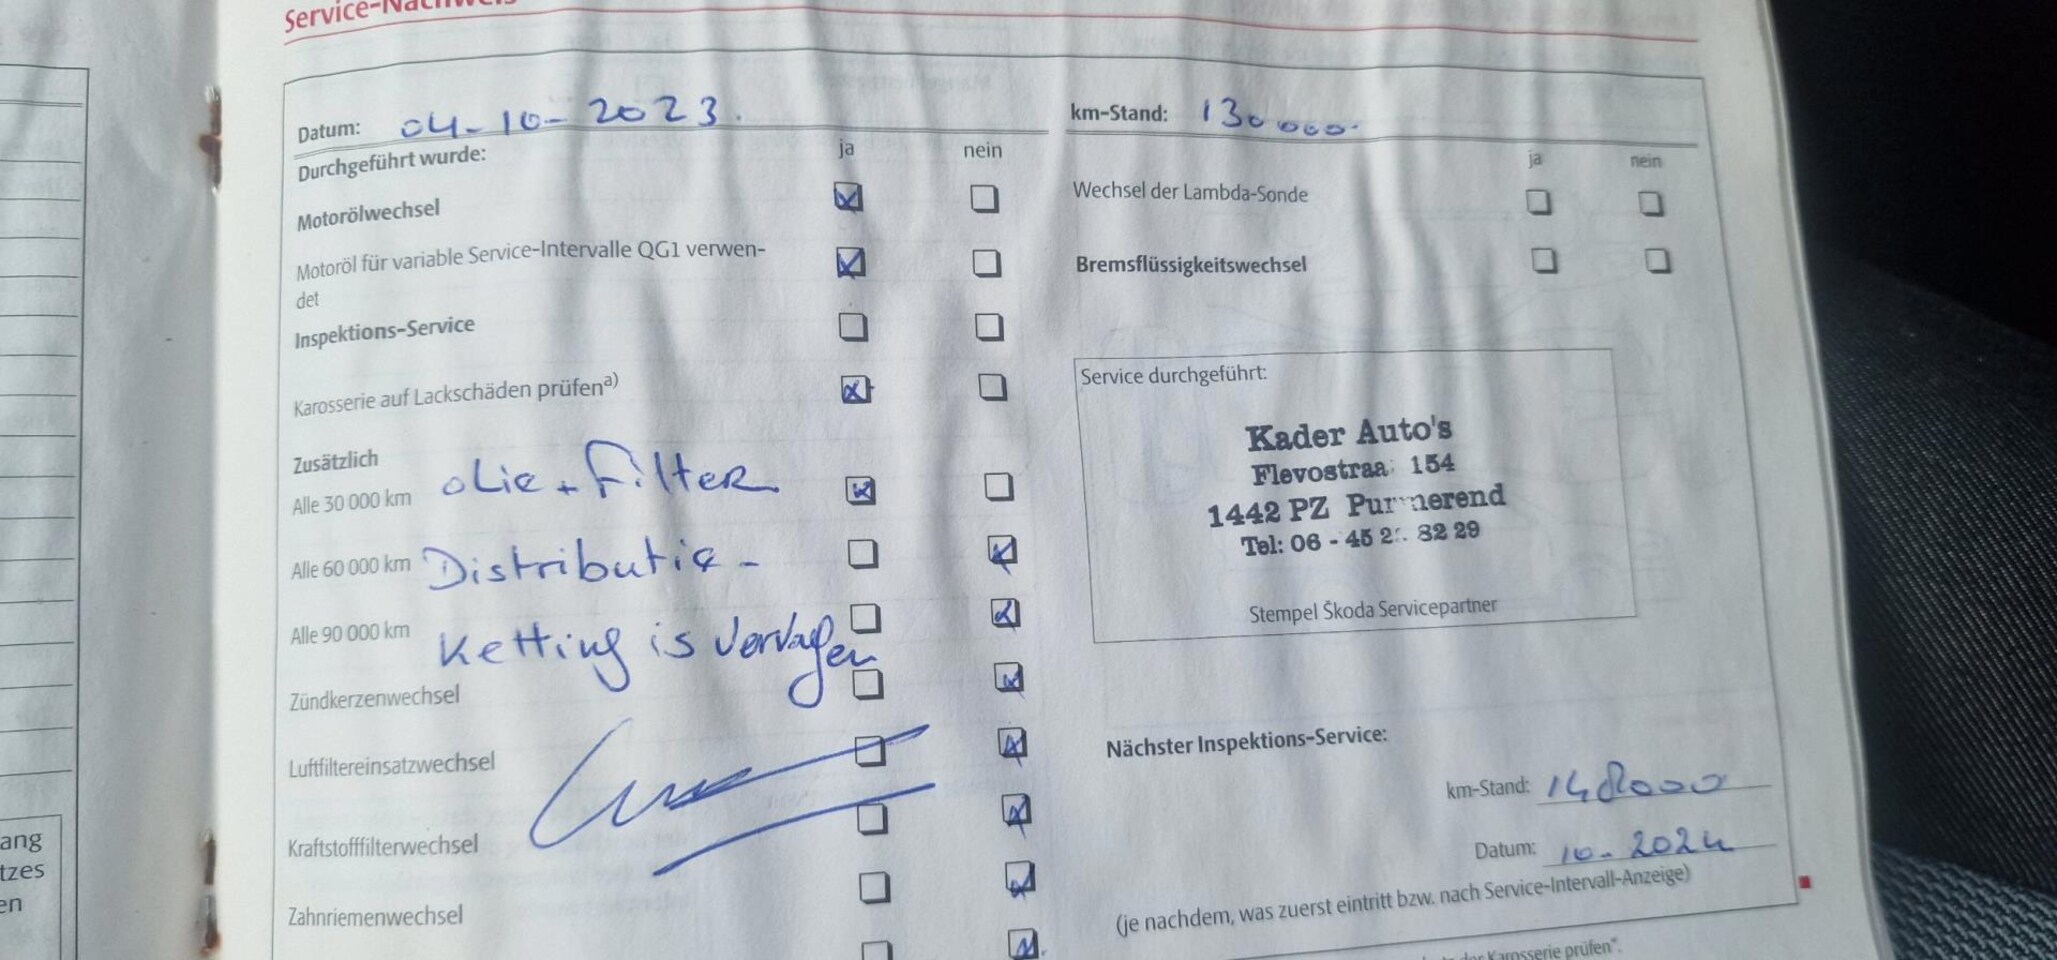 Service-Nachweis
Datum: 04-10-2023.
Durchgeführt wurde: ja nein
Motorölwechsel
Motoröl für variable Service-Intervalle QG1 verwen-
det
Inspektions-Service
Karosserie auf Lackschäden prüfena)
Zusätzlich
Alle 30 000 km olie + Filter
Alle 60 000 km Distributie -
Alle 90 000 km Ketting is
Zündkerzenwechsel
Luftfiltereinsatzwechsel
Kraftstofffilterwechsel
Zahnriemenwechsel
km-Stand: 130000.
ja nein
Wechsel der Lambda-Sonde
Bremsflüssigkeitswechsel
Service durchgeführt:
Kader Auto's
154
1442 PZ
Tel: 06 - 45 82 29
Stempel Škoda Servicepartner
Nächster Inspektions-Service:
km-Stand: 148000
Datum: 10-2024
(je nachdem, was zuerst eintritt bzw. nach Service-Intervall-Anzeige)
Karosserie prüfen".
ang
tzes
en